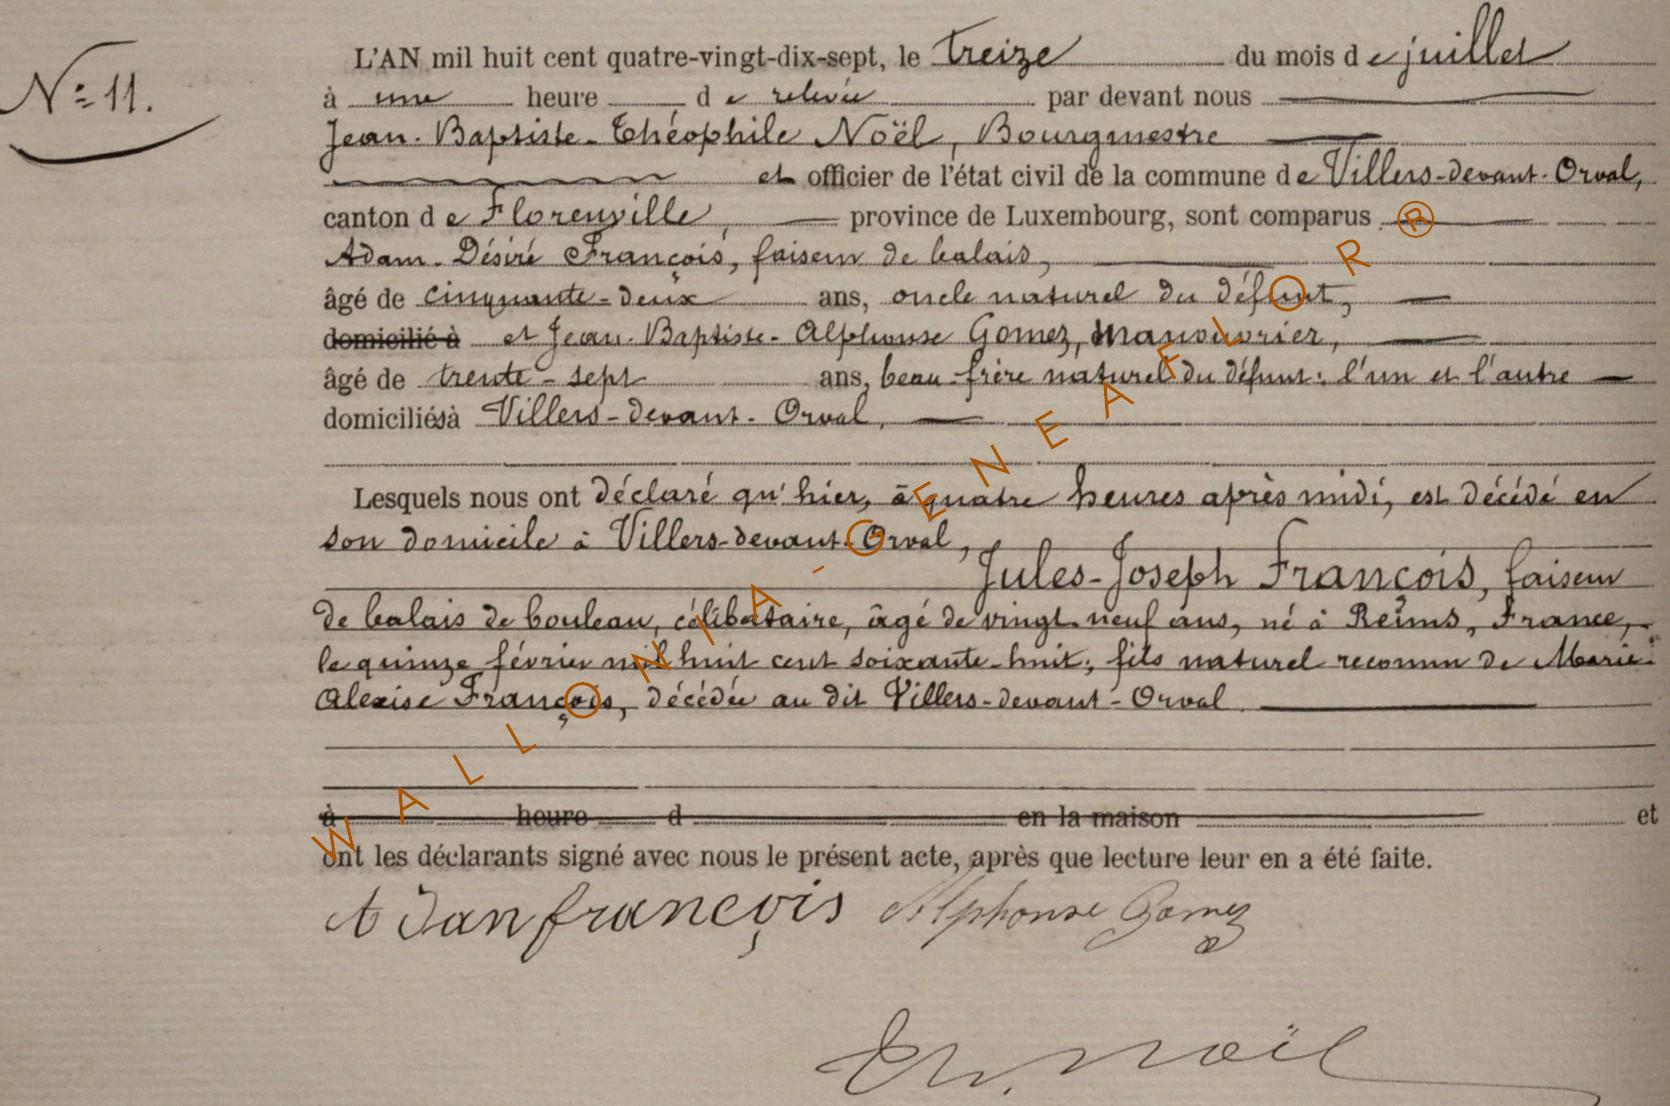 N° 11.
L'AN mil huit cent quatre-vingt-dix-sept, le treize du mois de juillet
à une heure de relevée par devant nous
Jean-Baptiste-Théophile Noël, Bourgmestre
et officier de l'état civil de la commune de Villers-devant-Orval,
canton de Florenville, province de Luxembourg, sont comparus
Adam-Désiré François, faiseur de balais,
âgé de cinquante-deux ans, oncle naturel du défunt,
domicilié à et Jean-Baptiste-Alphonse Gomez, manouvrier,
âgé de trente-sept ans, beau-frère naturel du défunt; l'un et l'autre
domiciliés à Villers-devant-Orval,
Lesquels nous ont déclaré qu'hier, à quatre heures après midi, est décédé en
son domicile à Villers-devant-Orval,
Jules-Joseph François, faiseur
de balais de bouleau, célibataire, âgé de vingt-neuf ans, né à Reims, France,
le quinze février mil huit cent soixante-huit; fils naturel reconnu de Marie-
Alexise François, décédée au dit Villers-devant-Orval
à heure d en la maison et
ont les déclarants signé avec nous le présent acte, après que lecture leur en a été faite.
Adan françois Alphonse Gomez
Th. Noël
WALLONIA-GENEAFLOR®